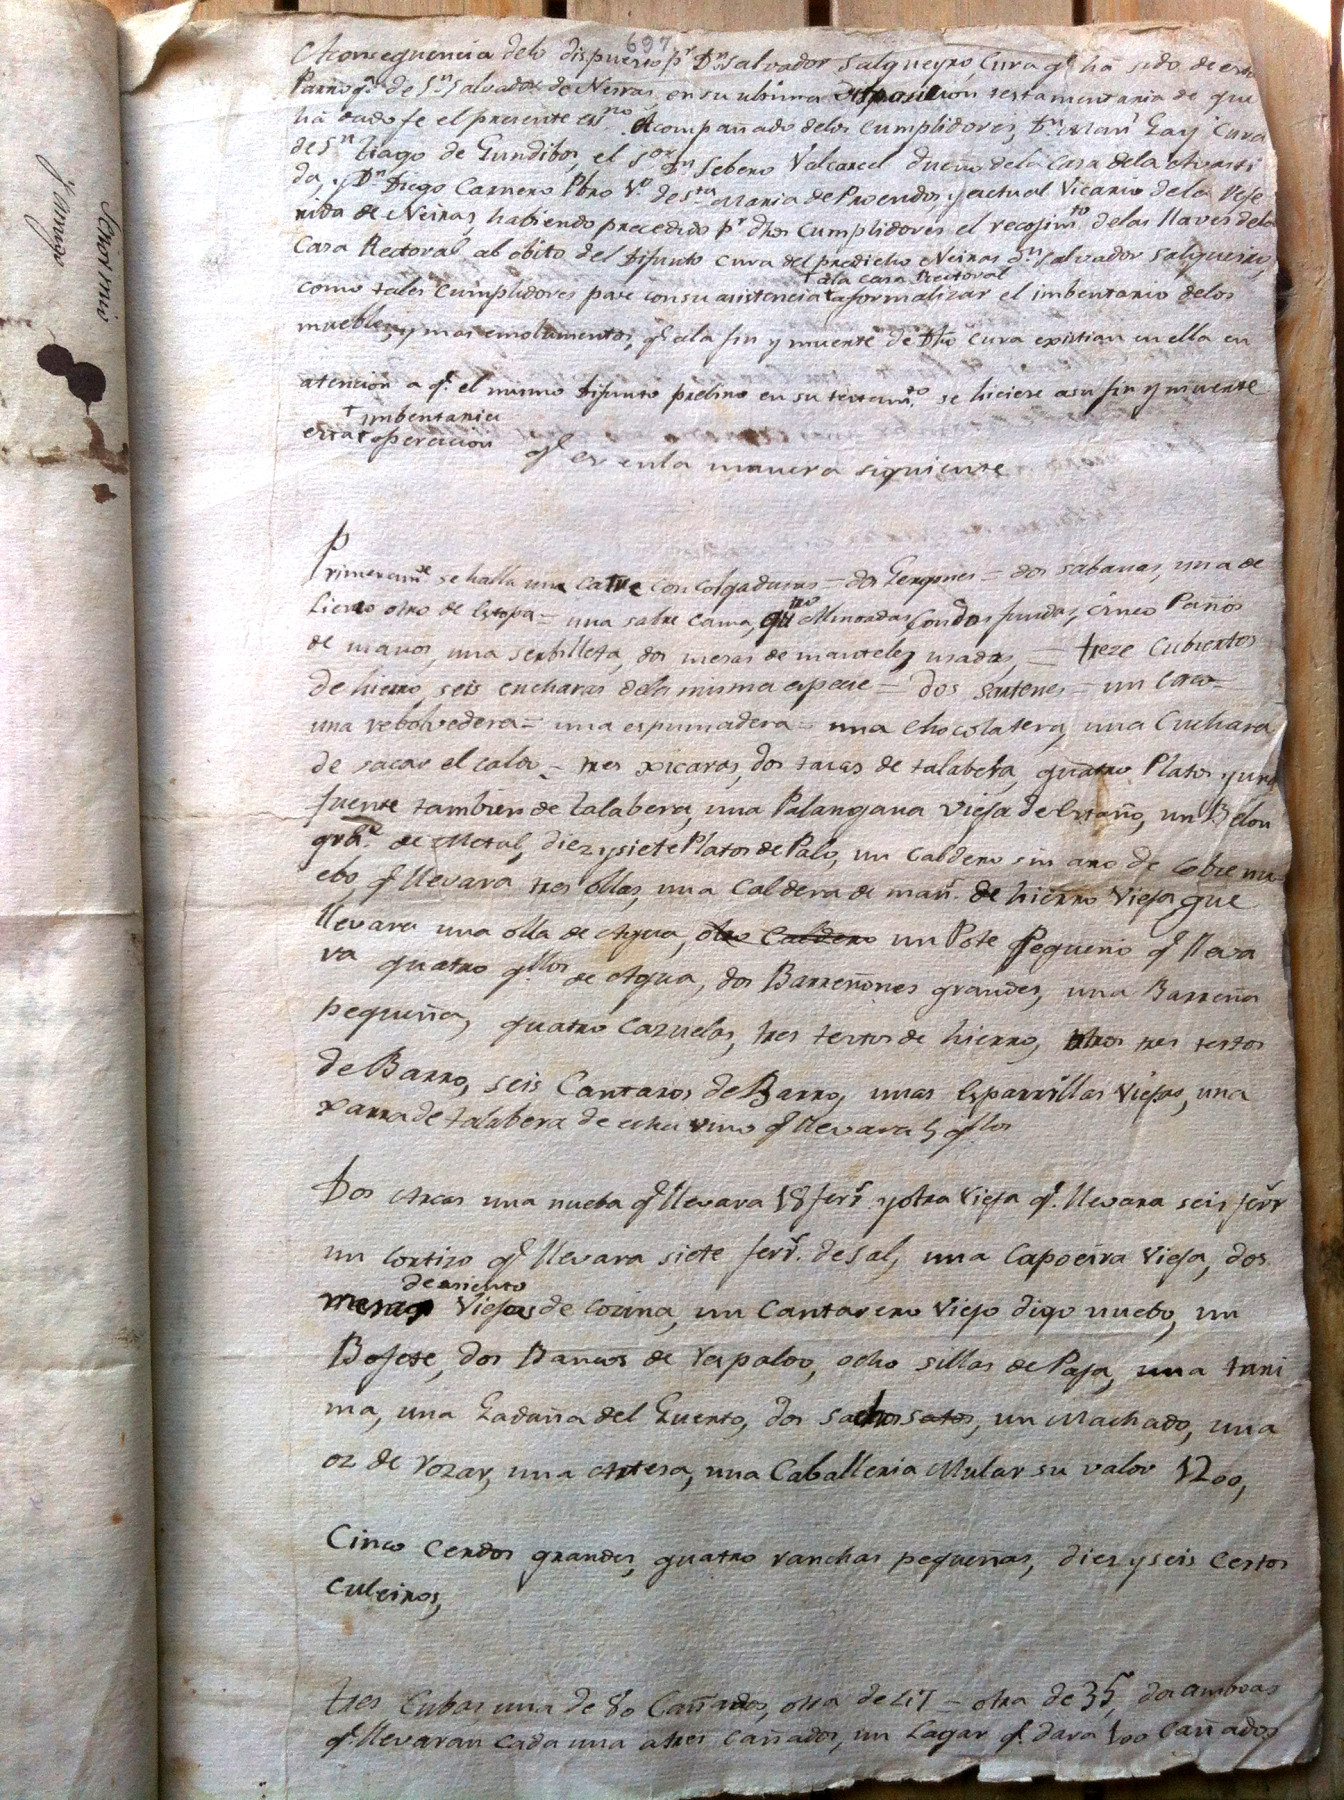 697
Aconsequencia delo dispuesto pr. Dn. Salvador Salgueyro, Cura qe. ha sido de esta
Parroqa. de Sn. Salvador de Neiras, en su ultima disposicion testamentaria de que
ha dado fe el presente essno. Acompañado delos Cumplidores, Dn. Manl. Gay Cura
de Sn. tiago de Gundibos, el Sor. Dn. Sebero Valcarcel dueño dela Casa dela
da, y Dn. Diego Carnero Pbro Vo. de Sta. Maria de Proendos, y actual Vicario dela Refe
rida de Neiras, habiendo precedido pr. dhos Cumplidores el recojimto. delas llaves dela
Casa Rectoral al obito del difunto Cura del predicho Neiras Dn. Salvador Salgueiro,
† ala casa Rectoral
como tales Cumplidores pase con su asistencia † aformalizar el imbentario delos
muebles, y mas emolumentos, qe. ala fin y muerte de dho Cura existian en ella en
atencion a qe. el mismo difunto en su testamto. se hiciese asu fin y muerte
† imbentaria
esta † operacion
qe. es enla manera siguiente
Primeramte. se halla una Catre con colgaduras = dos Gergones = dos sabanas, una de
Lienzo otro de Estopa = una sobre cama, quatro Almoadas, con dos fundas, cinco Paños
de manos, una serbilleta, dos mesas de manteles usadas, = treze Cubiertos
de hierro, seis cucharas dela misma especie = dos Sartenes = un Cazo =
una rebolvedera = una espumadera = una Chocolatera, una Cuchara
de sacar el caldo = tres xicaras, dos tazas de talabera, quatro Platos y una
fuente tambien de talabera, una Palangana vieja de Estaño, un Belon
grde. de Metal, diez y siete Platos de Palo, un Caldero sin aro de Cobre nu
ebo, qe. llevara tres ollas, una Caldera de man. de hierro Vieja que
llevara una olla de Agua, otro Caldero un Pote pequeño qe. lleva
va quatro qllos. de Agua, dos Barreñones grandes, una Barreña
pequeña, quatro Cazuelas, tres testos de hierro, otros tres testos
de Barro, seis Cantaros de Barro, unas Esparrillas Viejas, una
xarra de talabera de echar vino qe. llevara 5 qllos
Dos Arcas una nueba qe. llevara 18 ferrs. y otra Vieja qe. llevara seis ferrs
un Cortizo qe. llevara siete ferrs. de sal, una Capoeira Vieja, dos
de asiento
mesas Viejas de Cozina, un Cantarero Viejo digo nuebo, un
Bofete, dos Bancos de respaldo, ocho sillas de Paja, una tari
ma, una Gadaña del Guerto, dos sachos satos, un Machado, una
oz de rozar, una Artesa, una Caballeria Mular su valor 1200,
Cinco Cerdos grandes, quatro ranchas pequeñas, diez y seis Cestos
Culeiros,
tres Cubas una de 80 Cañados, otra de 47 = otra de 35, dos amboas
qe. llevaran cada una atres Cañados, un Lagar qe. dara 100 Cañados